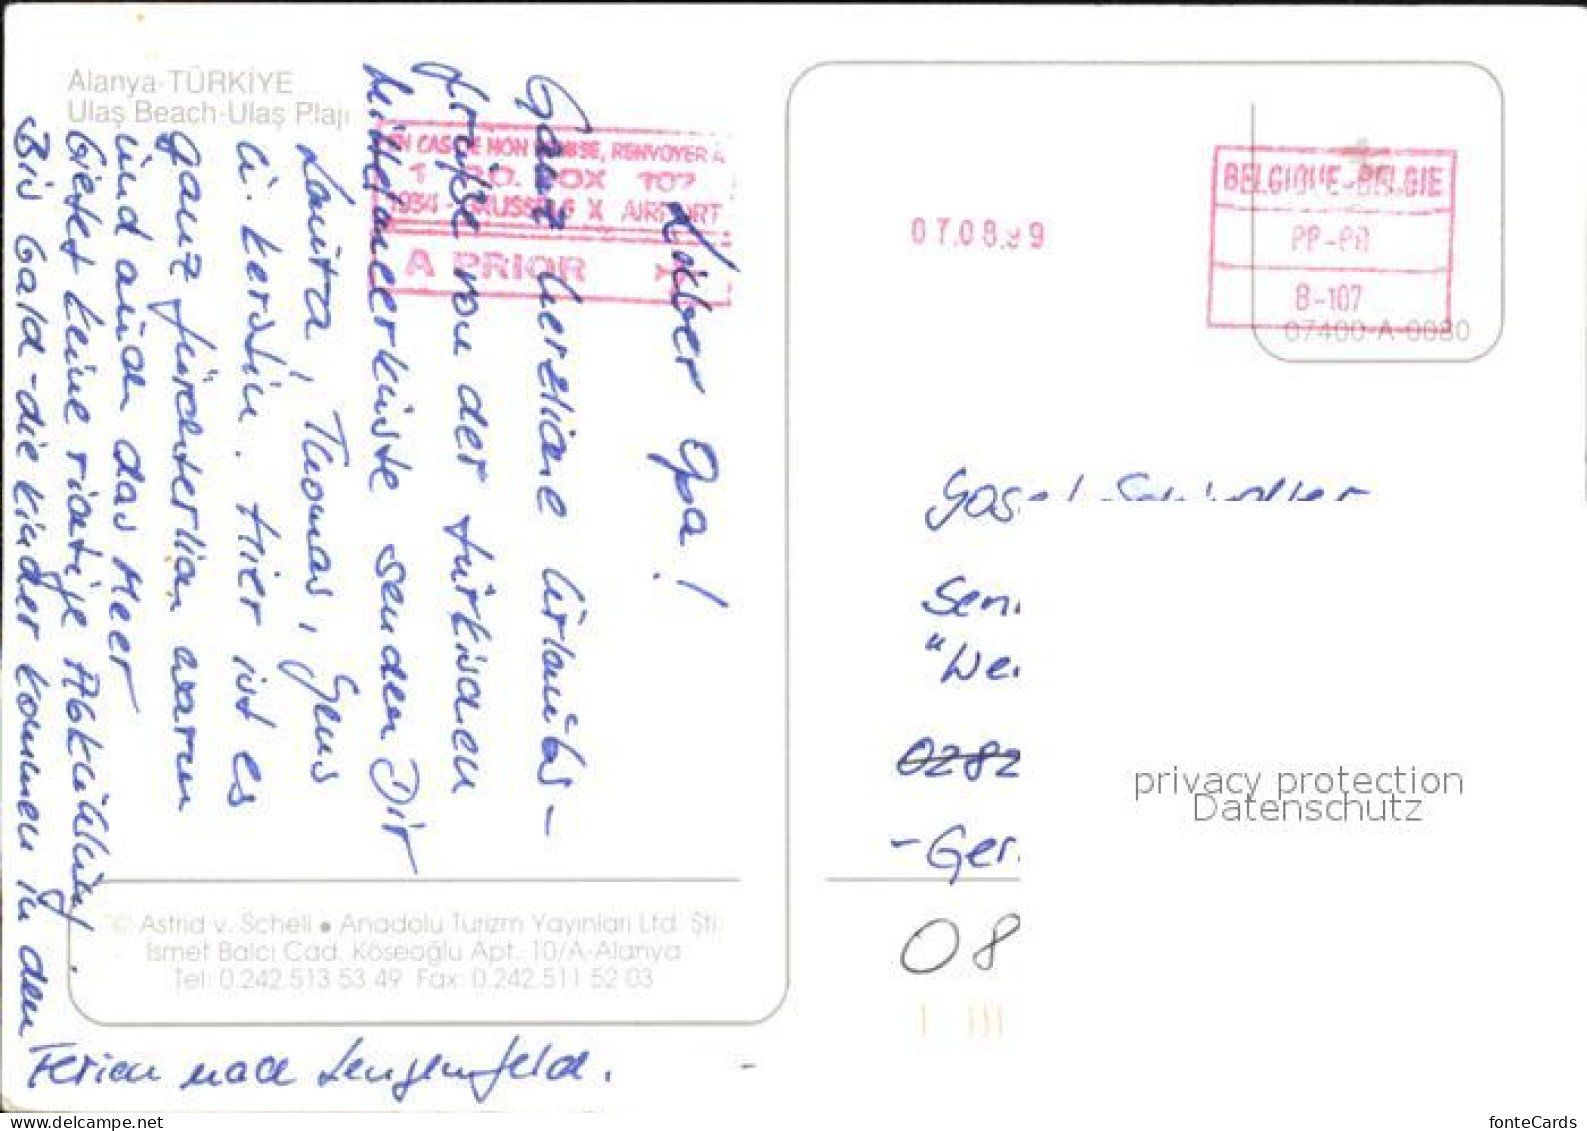 Alanya-TÜRKİYE
Ulaş Beach-Ulaş Plajı
Lieber Opa!
Ganz herzliche Urlaubs-
grüße von der türkischen
Mittelmeerküste senden Dir
Laura, Thomas, Jens
u. Kerstin. Hier ist es
ganz fürchterlich warm
und auch das Meer
bietet keine richtige Abkühlung.
Bis bald - die Kinder kommen in den
Ferien nach Lengenfeld.
EN CAS DE NON REMISE, RENVOYER A
P.O. BOX 107
1934 - BRUSSELS X AIRPORT
A PRIOR
07.08.99
BELGIQUE-BELGIE
PP-PB
B-107
07400-A-0080
0282
-Ger
08
privacy protection
Datenschutz
© Astrid v. Schell • Anadolu Turizm Yayınları Ltd. Şti.
İsmet Balcı Cad. Köseoğlu Apt. 10/A-Alanya
Tel: 0.242.513 53 49 Fax: 0.242.511 52 03
www.delcampe.net
fonteCards